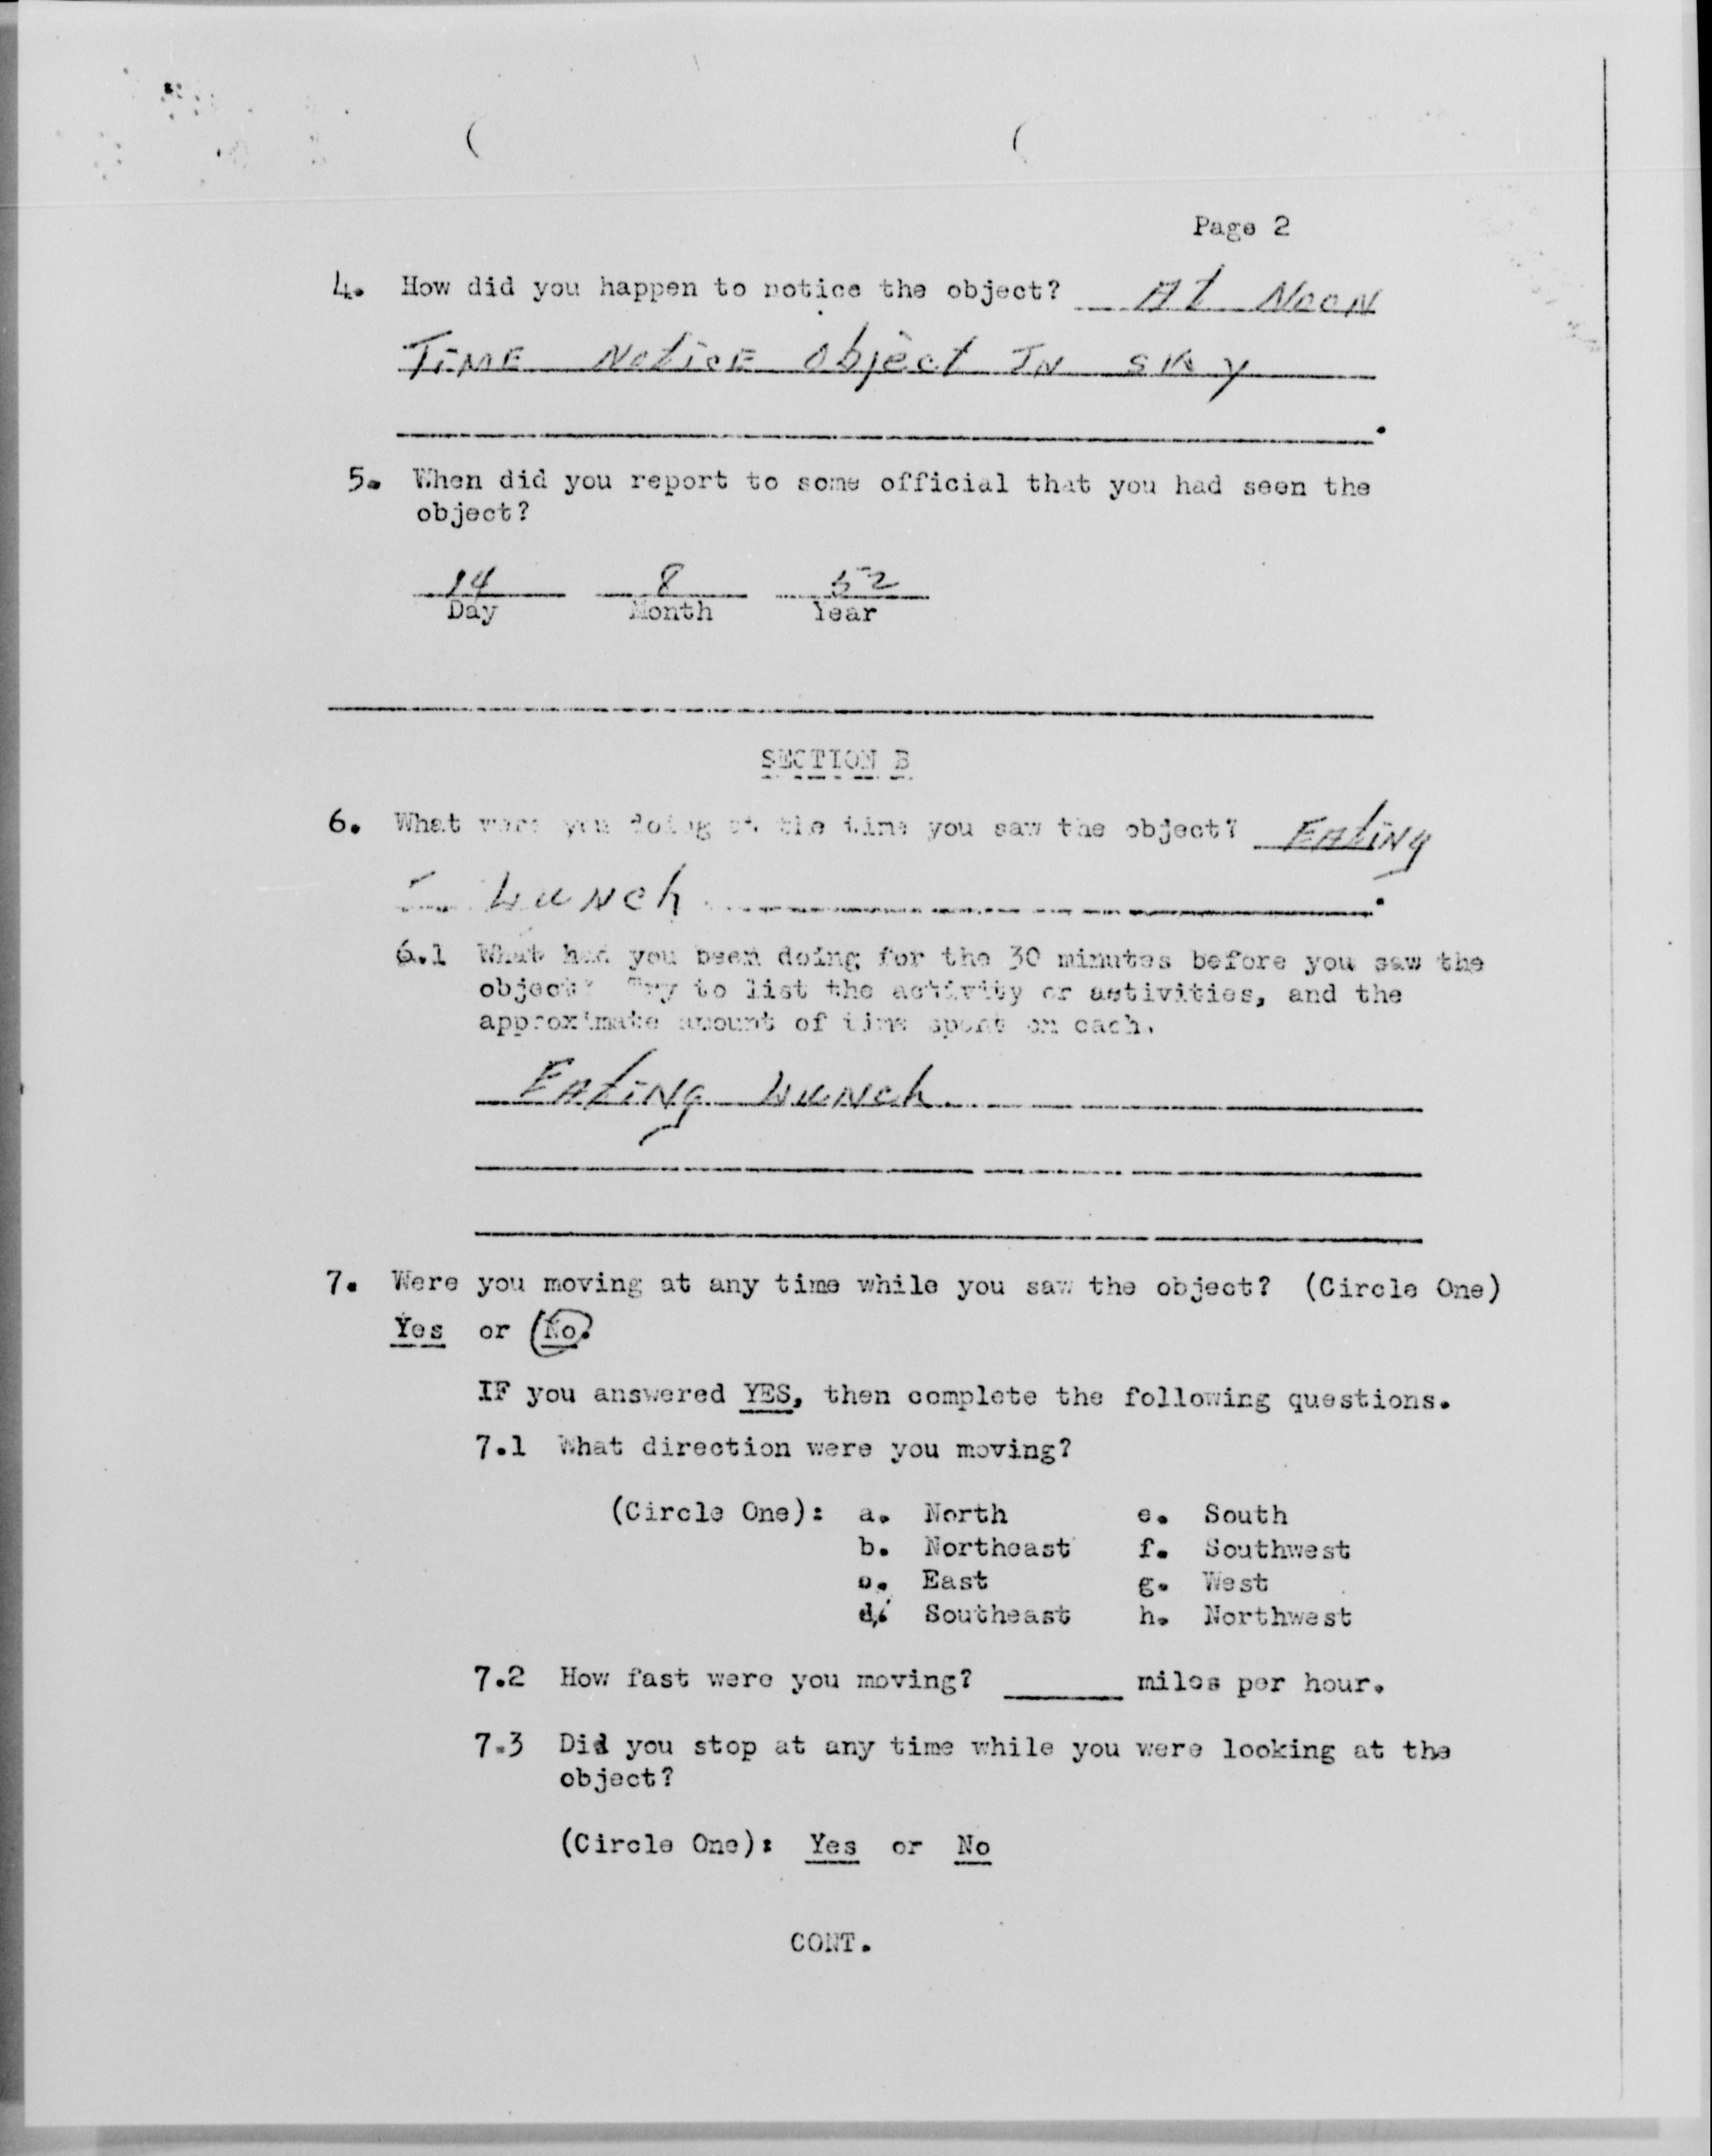 Page 2
4. How did you happen to notice the object? At Noon
Time Notice object In sky
.
5. When did you report to some official that you had seen the
object?
14 8 52
Day Month Year
SECTION B
6. What were you doing at the time you saw the object? Eating
Lunch .
6.1 What had you been doing for the 30 minutes before you saw the
object? Try to list the activity or activities, and the
approximate amount of time spent on each.
Eating Lunch
7. Were you moving at any time while you saw the object? (Circle One)
Yes or No.
IF you answered YES, then complete the following questions.
7.1 What direction were you moving?
(Circle One): a. North e. South
b. Northeast f. Southwest
c. East g. West
d. Southeast h. Northwest
7.2 How fast were you moving? ______ miles per hour.
7.3 Did you stop at any time while you were looking at the
object?
(Circle One): Yes or No
CONT.